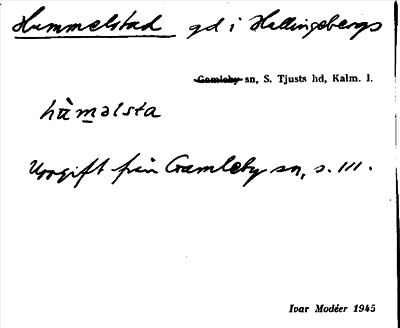 Hummelstad gd i Hallingebergs
Gamleby sn, S. Tjusts hd, Kalm. l.
hùməlsta
Uppgift från Gamleby sn, s. 111.
Ivar Modéer 1945